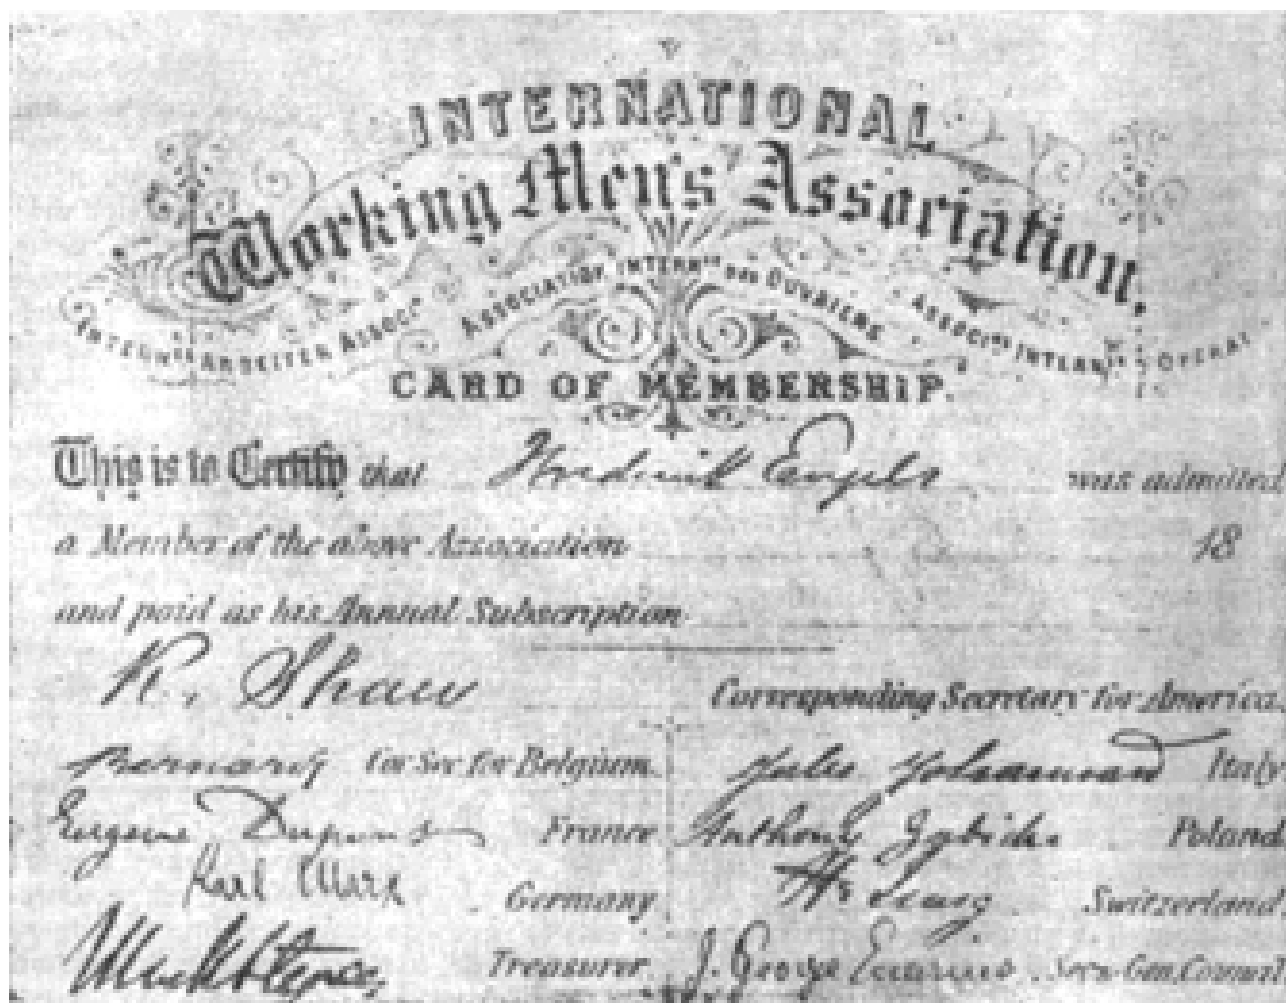 INTERNATIONAL
Working Men's Association.
INTERN. ARBEITER ASSOC. ASSOCIATION INTERN. DES OUVRIERS ASSOC. INTERN. OPERAI
CARD OF MEMBERSHIP.
This is to Certify that Frederick Engels was admitted
a Member of the above Association 18
and paid as his Annual Subscription
R. Shaw Corresponding Secretary for America.
Bernard Cor Sec for Belgium. Jules Johannard Italy
Eugene Dupont France Anthony Zabicki Poland
Karl Marx Germany H. Jung Switzerland
Treasurer J. George Eccarius Secy. Gen. Council